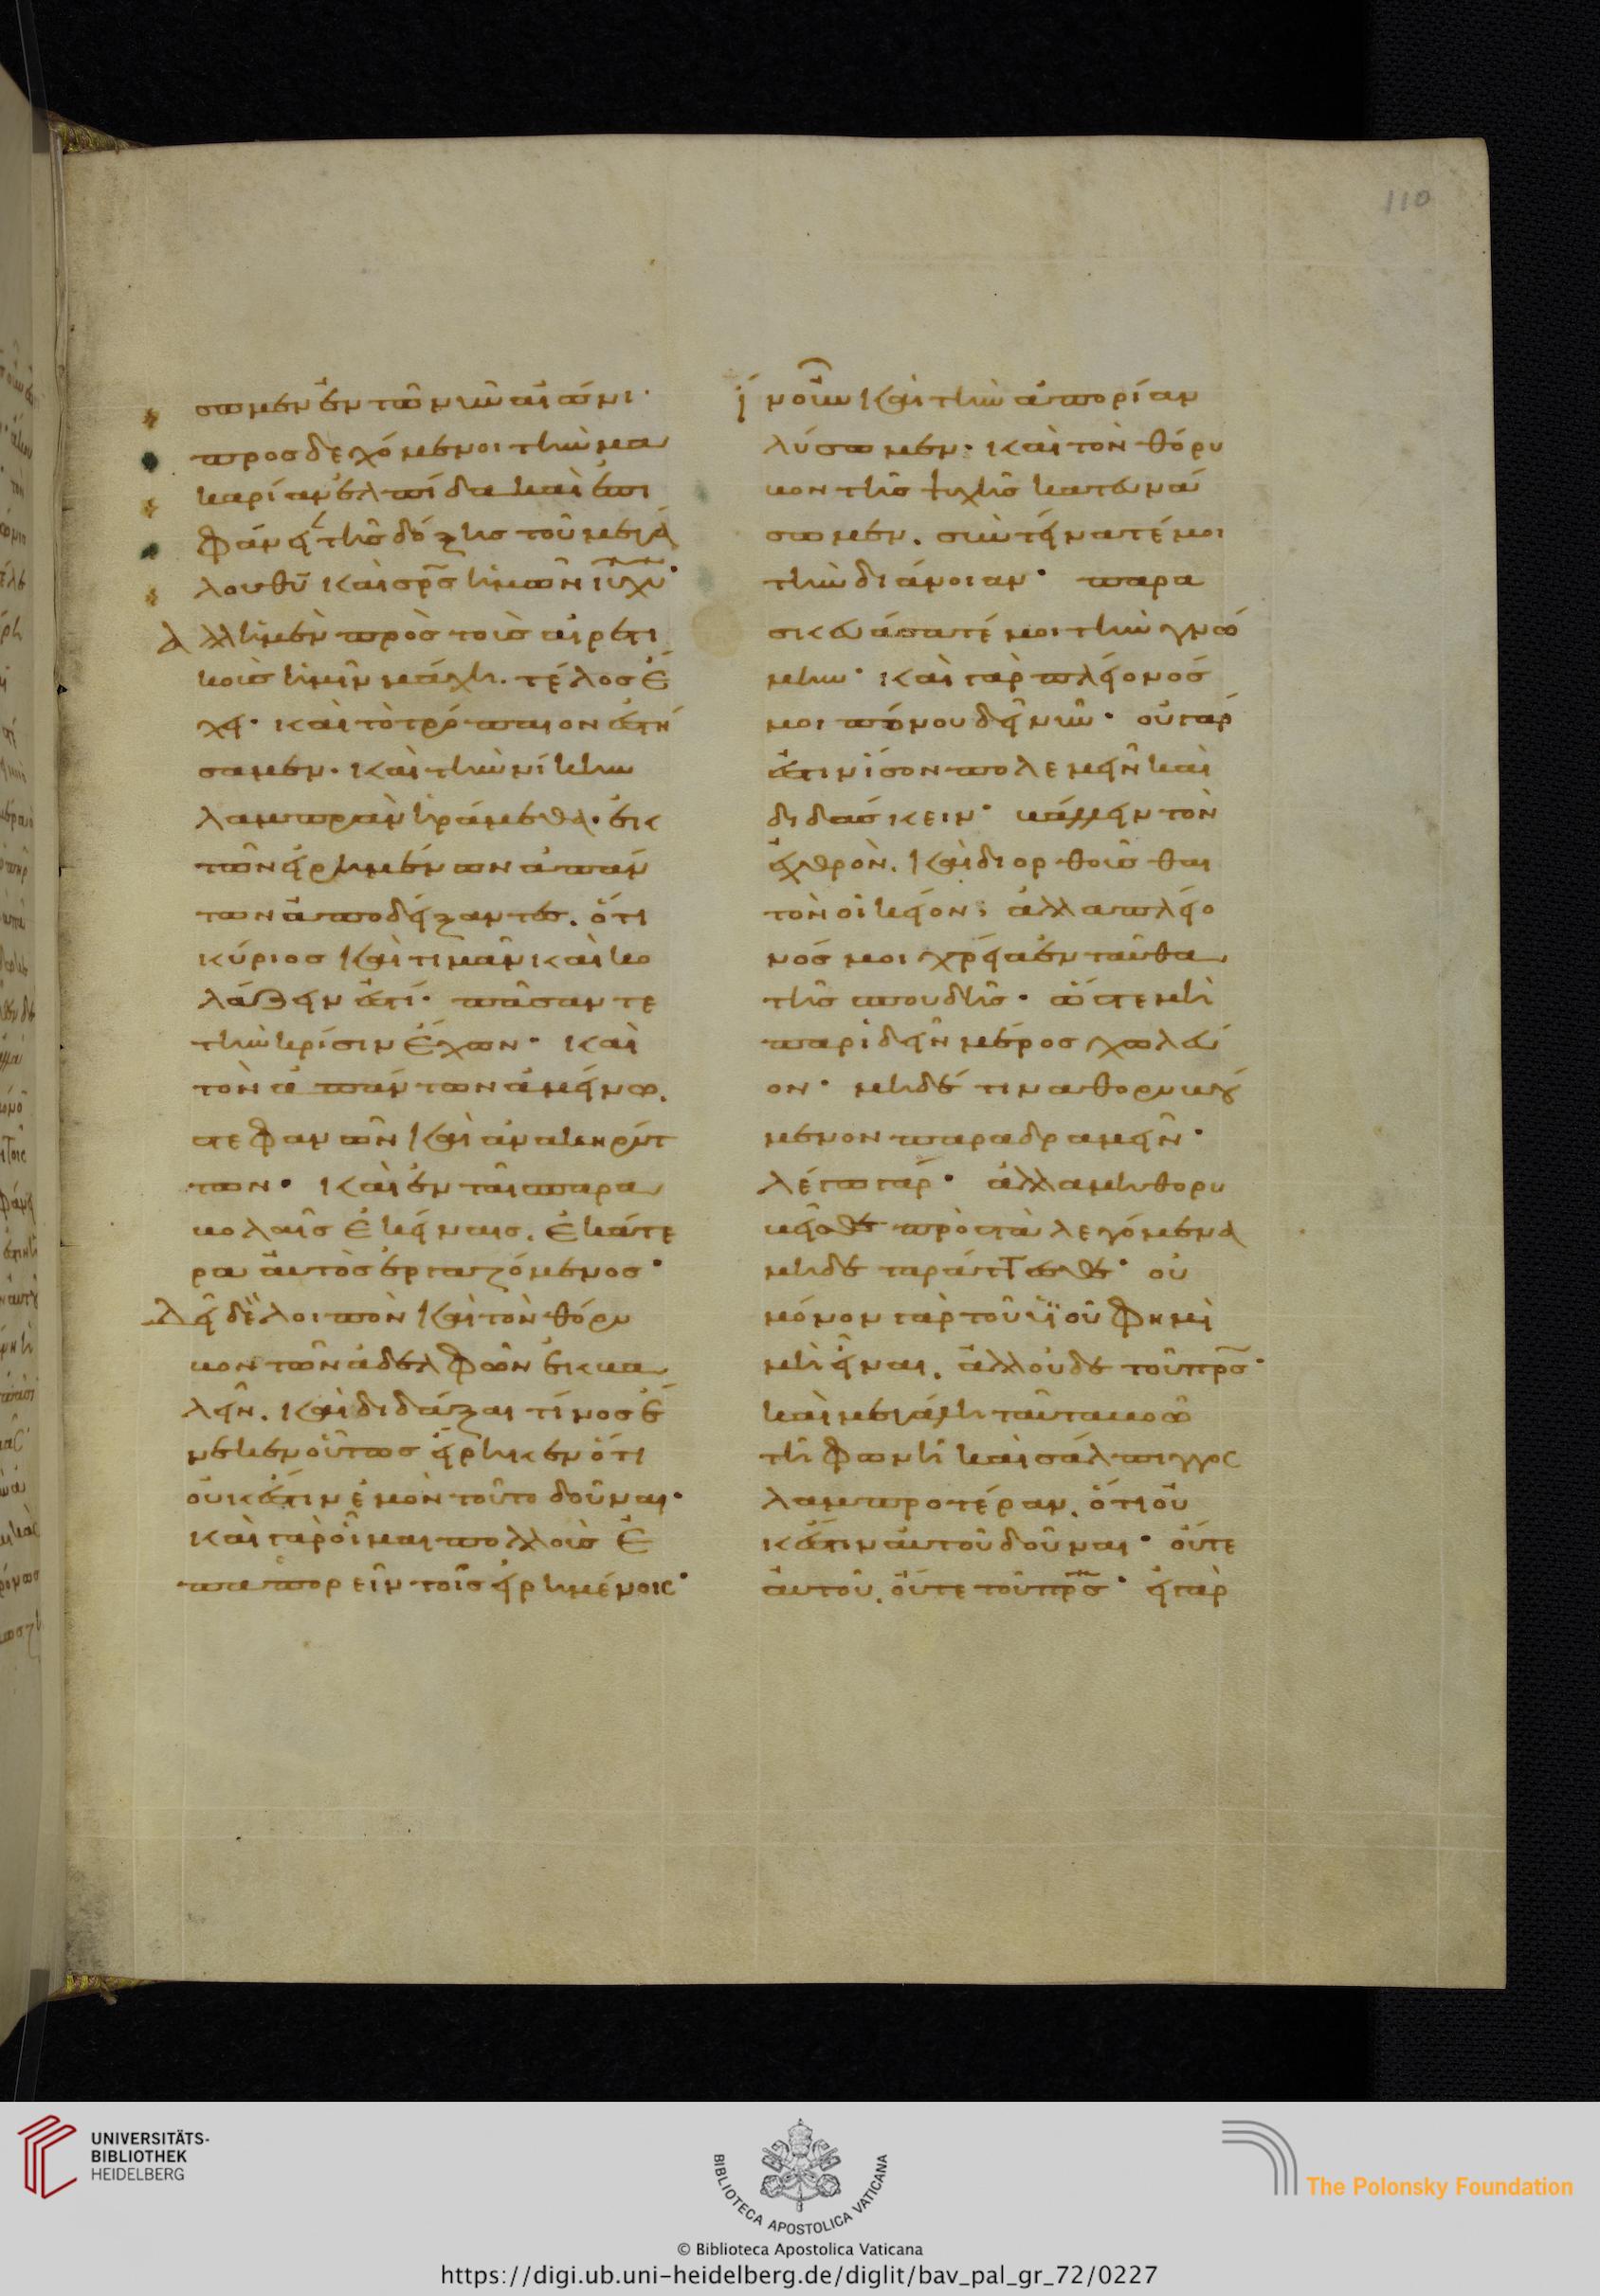 110
σωμεν ἐν τῶ νῦν αἰῶνι·
προσδεχόμενοι τὴν μα
καρίαν ἐλπίδα καὶ ἐπι
φάνει τῆς δόξης τοῦ μεγά
λου θυ καὶ σρς ἡμῶν ιυ χυ·
Ἀλλ ἡ μὲν πρὸς τοὺς αἱρετι
κοὺς ἡμῖν μάχη. τέλος ἔ
χει· καὶ τὸ τρόπαιον ἐστή
σαμεν. καὶ τὴν νίκην
λαμπρὰν ἠράμεθα. ἐκ
τῶν εἰρημένων ἁπάν
των ἀποδείξαντες. ὅτι
κύριος καὶ τιμᾶν καὶ κο
λάζειν ἐστί· πᾶσάν τε
τὴν κρίσιν ἔχων· καὶ
τὸν ἁπάντων ἀμείνω.
στεφανῶν καὶ ἀνακηρύτ
των· καὶ ἐν ταῖ παρα
βολαῖς ἐκείναις. ἑκάτε
ρα αὐτὸς ἐργαζόμενος·
Δεῖ δὲ λοιπὸν καὶ τὸν θόρυ
βον τῶν ἀδελφῶν ἐκβα
λεῖν. καὶ διδάξαι τίνος ἕ
νεκεν οὕτως εἴρηκεν ὅτι
οὐκ ἔστιν ἐμὸν τοῦτο δοῦναι·
καὶ γὰρ οἶμαι πολλοὺς ἐ
παπορεῖν τοῖς εἰρημένοις·
ἵν οὖν καὶ τὴν ἀπορίαν
λύσωμεν· καὶ τὸν θόρυ
βον τῆς ψυχῆς κατευνά
σωμεν. συντείνατέ μοι
τὴν διάνοιαν· παρα
σκευάσατέ μοι τὴν γνώ
μην· καὶ γὰρ πλείονός
μοι πόνου δεῖ νῦν· οὐ γάρ
ἐστιν ἴσον πολεμεῖν καὶ
διδάσκειν· βάλλειν τὸν
ἐχθρὸν. καὶ διορθοῦσθαι
τὸν οἰκεῖον; ἀλλα πλείο
νός μοι χρεία ἐνταῦθα
τῆς σπουδῆς· ὥστε μὴ
παριδεῖν μέρος χωλεῦ
ον· μηδέ τινα θορυβού
μενον παραδραμεῖν·
λέγω γάρ· ἀλλα μὴ θορυ
βεῖσθε πρὸς τὰ λεγόμενα
μηδὲ ταράττεσθε· οὐ
μόνον γὰρ τοῦ υἱοῦ φημὶ
μὴ εἶναι. ἀλλ οὐδὲ τοῦ πρς·
καὶ μεγάλη ταῦτα βοῶ
τῆ φωνῆ καὶ σάλπιγγος
λαμπροτέραν. ὅτι οὐ
κ ἔστιν αὐτοῦ δοῦναι· οὔτε
αὐτοῦ. οὔτε τοῦ πρς· εἰ γὰρ
UNIVERSITÄTS-
BIBLIOTHEK
HEIDELBERG
BIBLIOTECA APOSTOLICA VATICANA
The Polonsky Foundation
© Biblioteca Apostolica Vaticana
https://digi.ub.uni-heidelberg.de/diglit/bav_pal_gr_72/0227